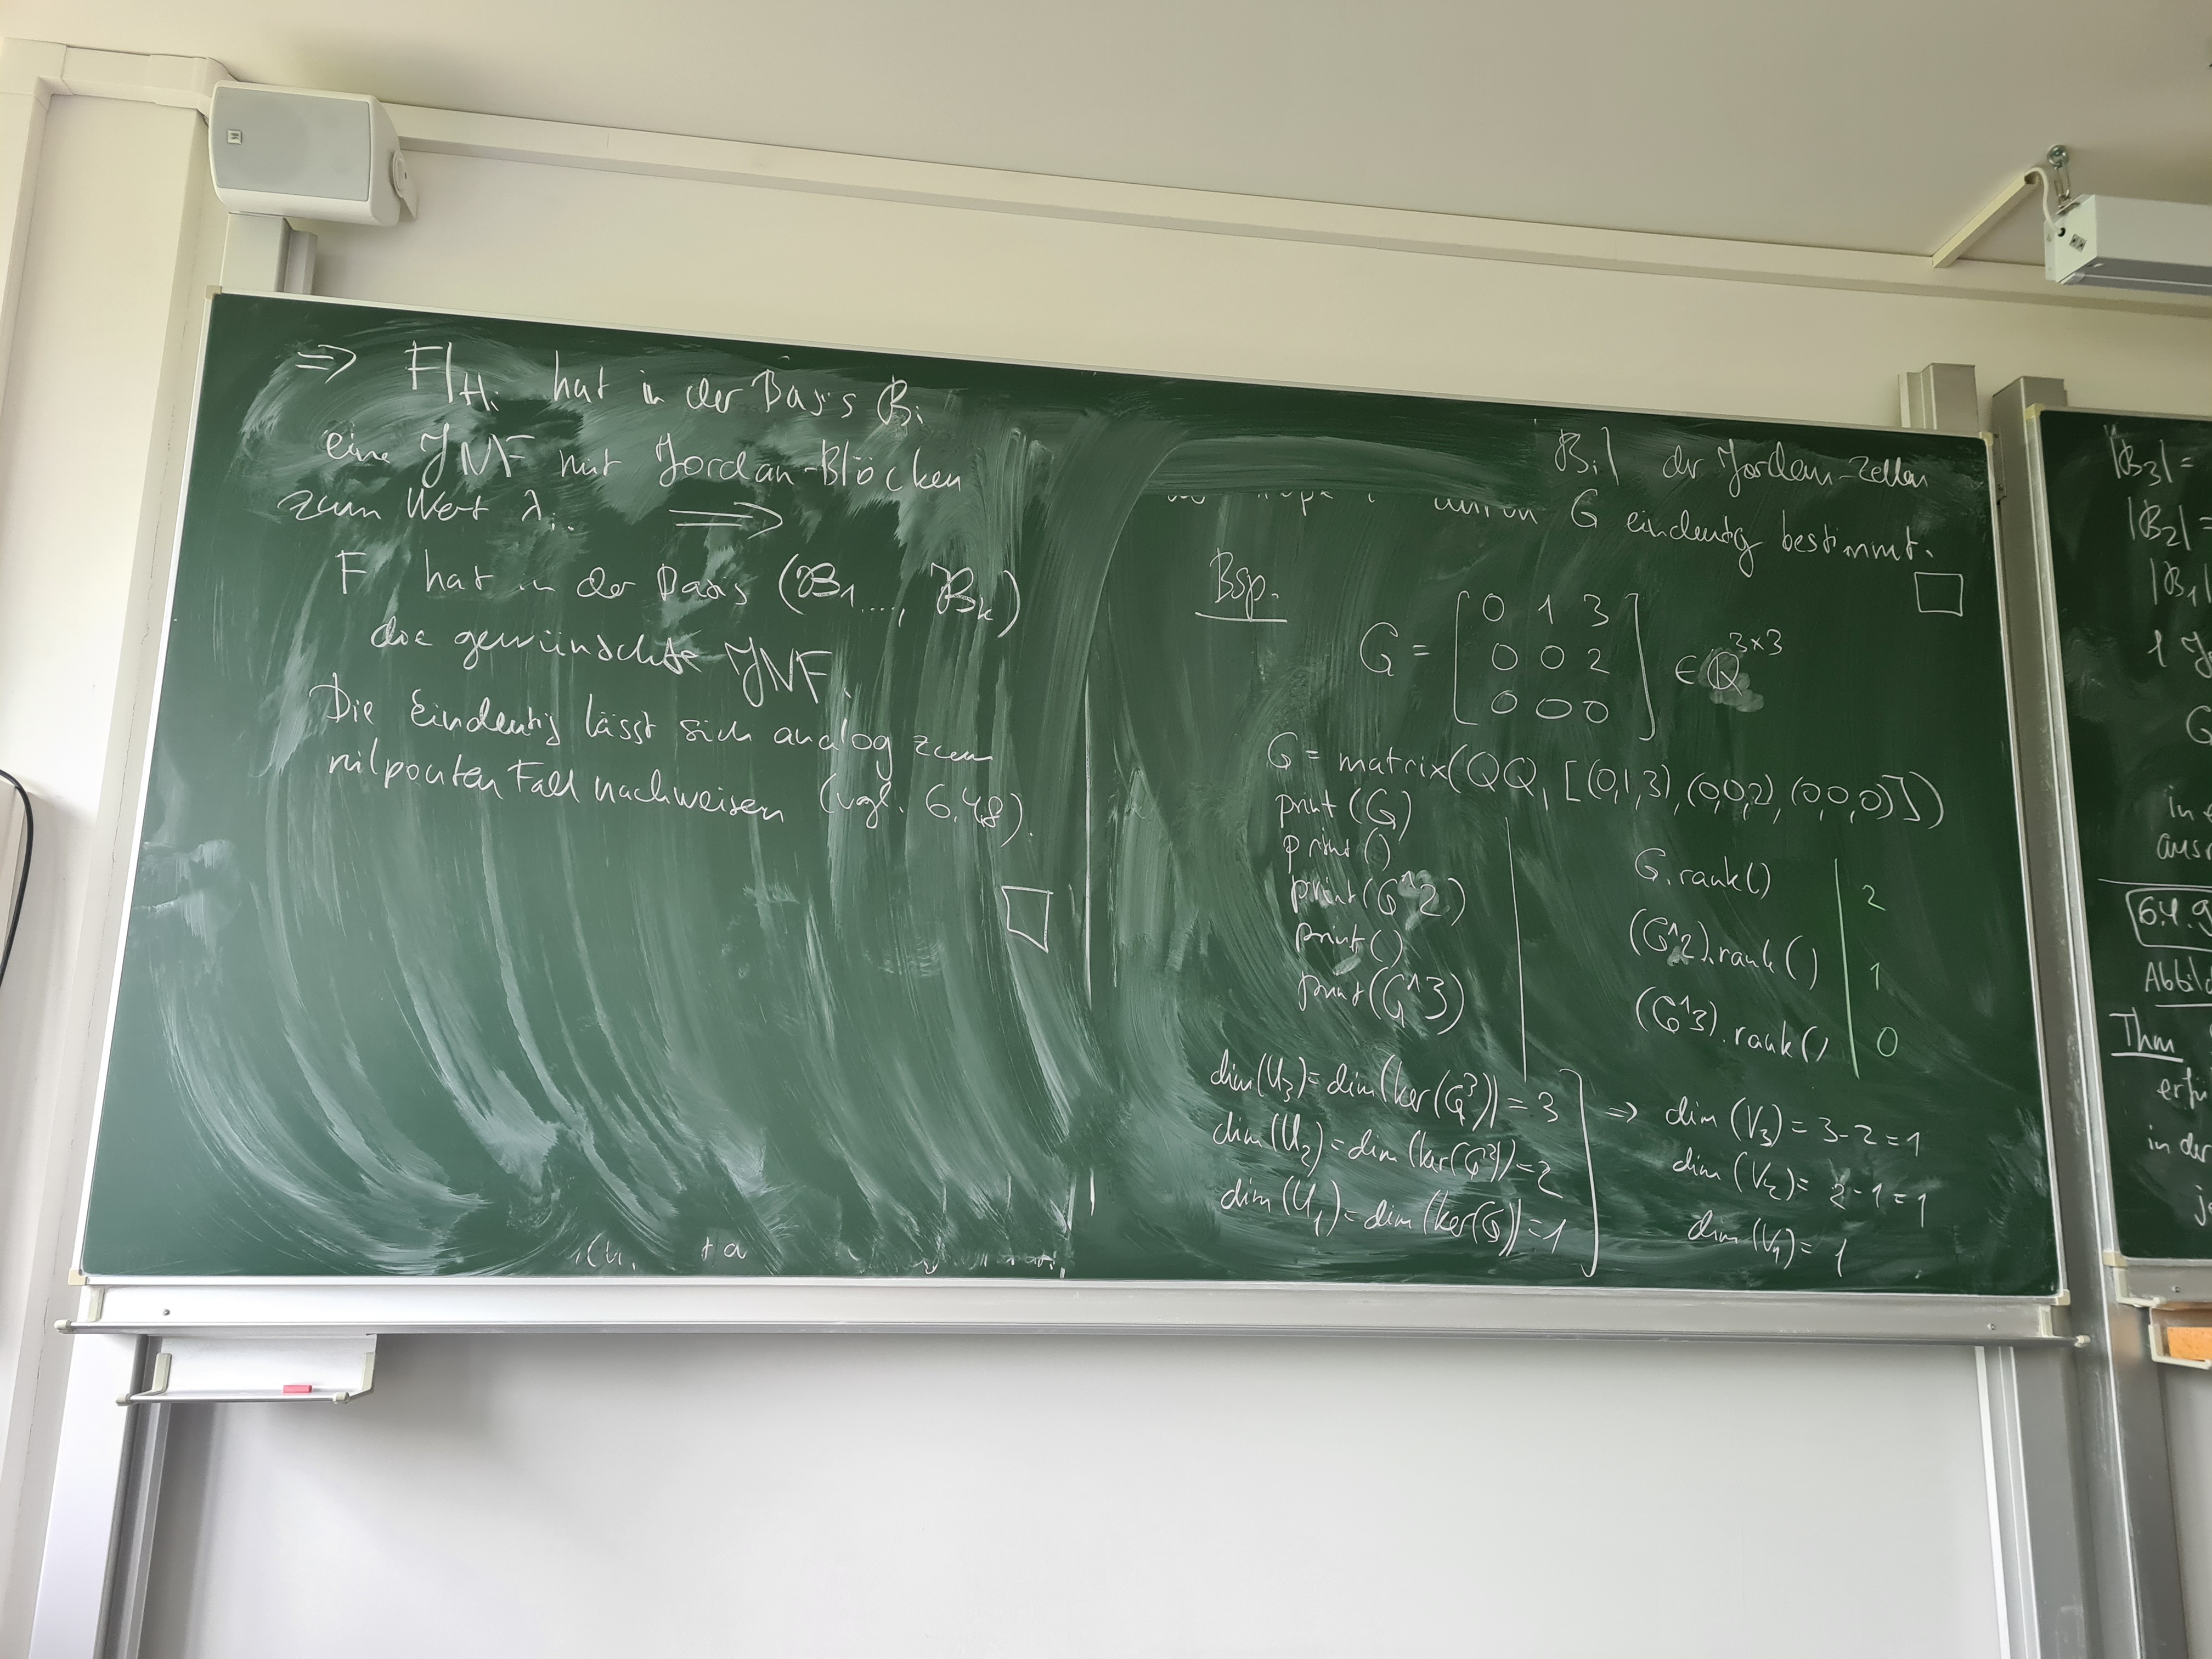 ⇒ F|Hi hat in der Basis Bi
eine JNF mit Jordan-Blöcken
zum Wert λi. ⇒
F hat in der Basis (B1..., Bk)
die gewünschte JNF.
Die Eindeutig lässt sich analog zum
nilpoten Fall nachweisen (vgl. 6.4.8).
|Bi| der Jordan-Zellen
durch G eindeutig bestimmt.
Bsp.
G = [0 1 3
0 0 2
0 0 0] ∈ Q^3×3
G = matrix(QQ, [(0,1,3), (0,0,2), (0,0,0)])
print(G)
print()
print(G^2)
print()
print(G^3)
G.rank() | 2
(G^2).rank() | 1
(G^3).rank() | 0
dim(U3) = dim(ker(G^3)) = 3
dim(U2) = dim(ker(G^2)) = 2
dim(U1) = dim(ker(G)) = 1
⇒ dim(V3) = 3-2 = 1
dim(V2) = 2-1 = 1
dim(V1) = 1
|B3| =
|B2| =
|B1|
1
G
in
6.4.9
Thm
in der